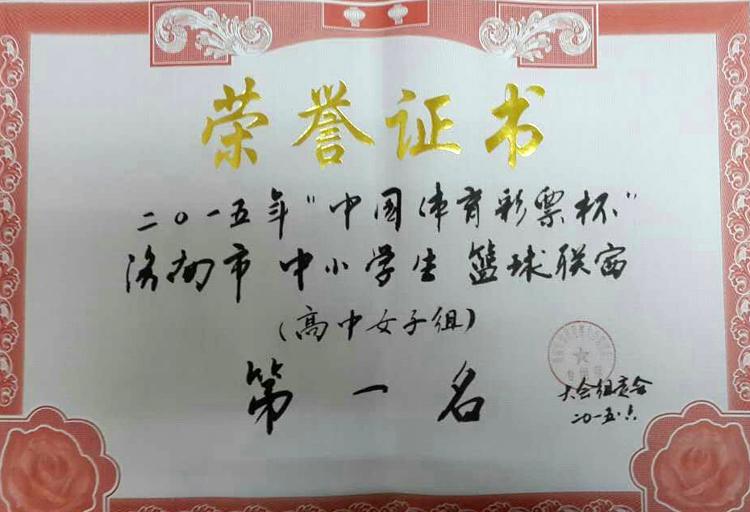 荣誉证书
二〇一五年"中国体育彩票杯"
市中小学生篮球联赛
(高中女子组)
第一名
大会组委会
二〇一五.六